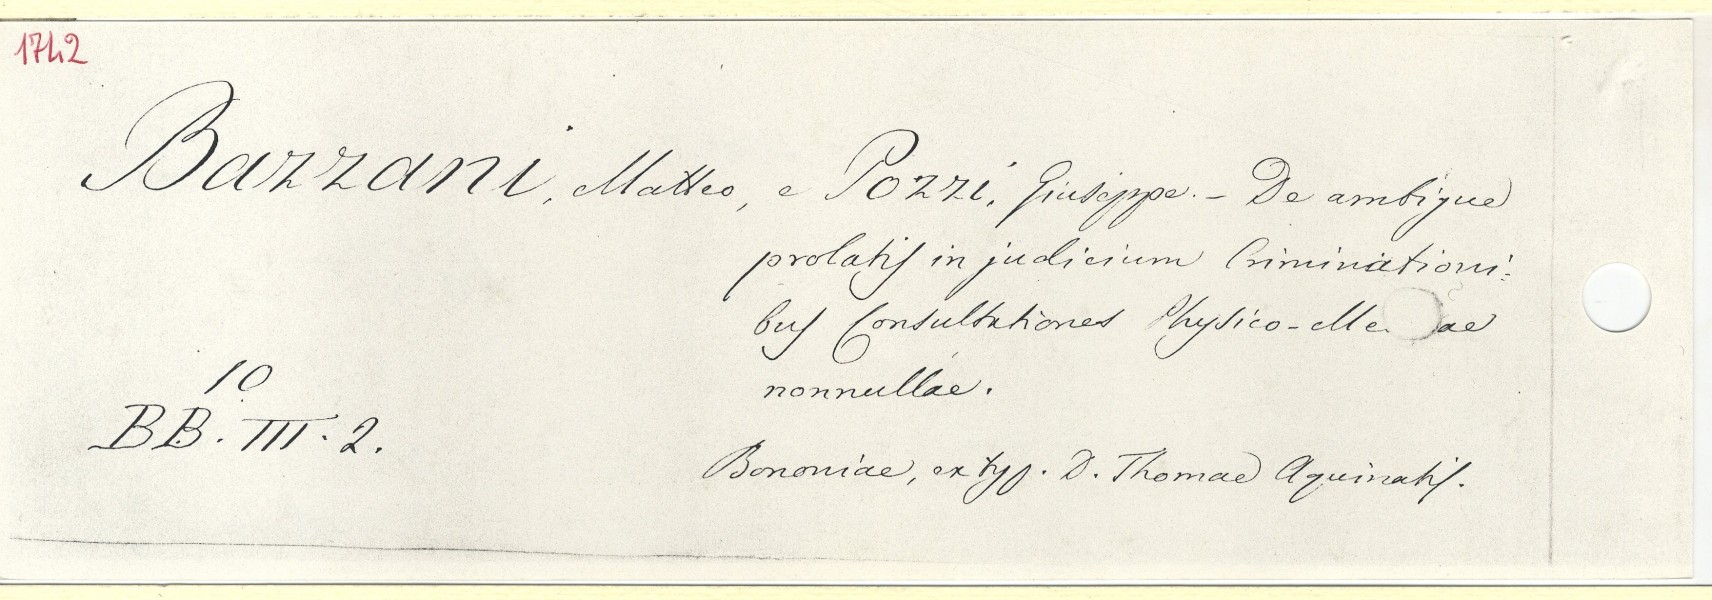 1742
Bazzani, Matteo, e Pozzi, Giuseppe. - De ambigue
prolatis in judicium Criminationi-
bus Consultationes Physico-Me ae
nonnullae.
10
BB. III. 2.
Bononiae, ex typ. D. Thomae Aquinatis.